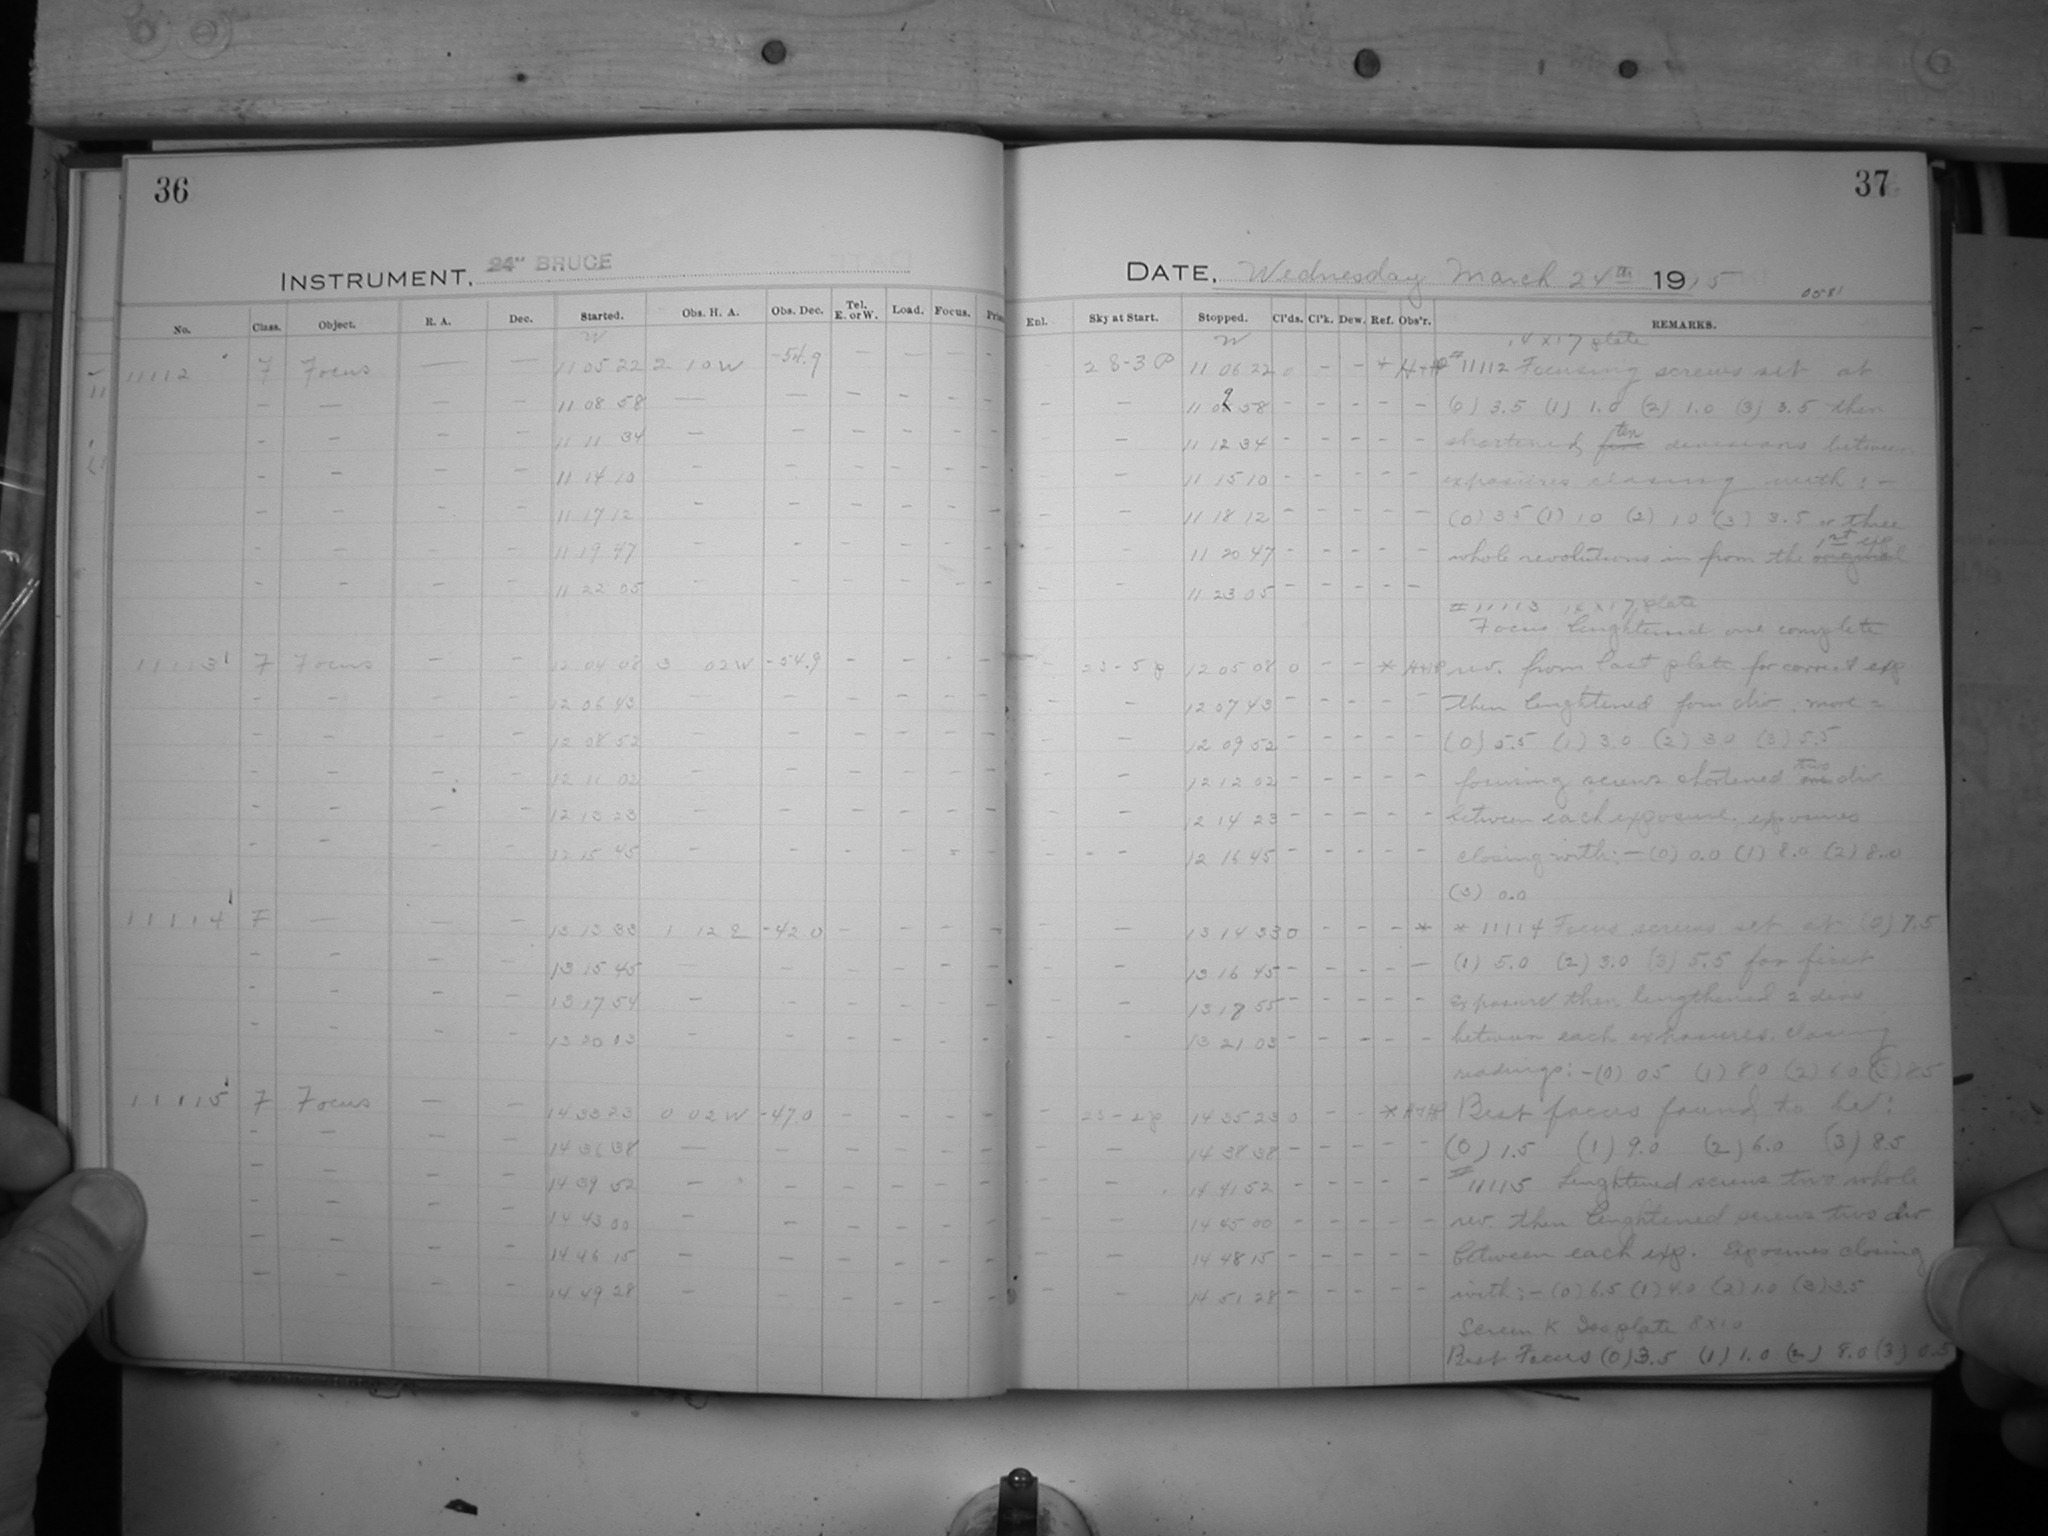 36
INSTRUMENT, 24" BRUCE
No. Class. Object. R. A. Dec. Started. Obs. H. A. Obs. Dec. Tel. E. or W. Load. Focus.
W
11112 F Focus — — 11 05 22 2 10 W -54.9 — — — -
- — - — 11 08 58 — - - - - -
- - - — 11 11 34 - - - - - -
- - - 11 14 10 - - - - - -
- - - - 11 17 12 - - - - - -
- - - - 11 19 47 - - - - - -
- - - - 11 22 05 - - - - - -
11113 F Focus - - 12 04 08 3 02 W -54.9 - - - -
- - - - 12 06 43 - - - - - -
- - - - 12 08 52 - - - - - -
- - - - 12 11 02 - - - - - -
- - - - 12 13 23 - - - - - -
- - - - 12 15 45 - - - - - -
11114 F — — — 13 13 33 1 12 E -42.0 - - - -
- - - - 13 15 45 — - - - - -
- - - - 13 17 54 - - - - - -
- - - - 13 20 13 - - - - - -
11115 F Focus - - 14 33 23 0 02 W -47.0 - - - -
- - - - 14 36 38 — - - - - -
- - - - 14 39 52 - - - - - -
- - - - 14 43 00 - - - - - -
- - - - 14 46 15 - - - - - -
- - - - 14 49 28 - - - - - -
37
DATE, Wednesday March 24th 1915
Enl. Sky at Start. Stopped. Cl'ds. Cl'k. Dew. Ref. Obs'r. REMARKS.
W
14 x 17 plate
11 06 22 0 - - # 11112 Focusing screws set at
- — 11 09 58 - - - - - (0) 3.5 (1) 1.0 (2) 1.0 (3) 3.5 then
— 11 12 34 - - - - - shortened five ten divisions between
- 11 15 10 - - - - - exposures closing with :-
- - 11 18 12 - - - - - (0) 3.5 (1) 1.0 (2) 1.0 (3) 3.5 or three
- - 11 20 47 - - - - - whole revolutions in from the original 1st exp
- - 11 23 05 - - - - -
# 11113 14 x 17 plate
Focus lenghtened one complete
12 05 08 0 - - * rev. from last plate for correct exp
- 12 07 43 - - - - - then lenghtened div. more =
- 12 09 52 - - - - - (0) 5.5 (1) 3.0 (2) 3.0 (3) 5.5
- 12 12 02 - - - - - focusing screws shortened one two div.
- 12 14 23 - - - - - between each exposure, exposures
- - 12 16 45 - - - - - closing with:- (0) 0.0 (1) 8.0 (2) 8.0
(3) 0.0
— 13 14 33 0 - - - * * 11114 Focus screws set at (0) 7.5
- 13 16 45 - - - - — (1) 5.0 (2) 3.0 (3) 5.5 for first
- 13 18 55 - - - - - exposure then lengthened 2 divs
- 13 21 03 - - - - - between each exposures. closing
readings:- (0) 0.5 (1) 8.0 (2) 6.0 (3) 8.5
14 35 23 0 - - * Best focus found to be:
- — 14 38 38 - - - - - (0) 1.5 (1) 9.0 (2) 6.0 (3) 8.5
- - 14 41 52 - - - - - # 11115 Lenghtened screws two whole
- - 14 45 00 - - - - - rev. then lenghtened screws two div
- — 14 48 15 - - - - - between each exp. Exposures closing
- - 14 51 28 - - - - - with:- (0) 6.5 (1) 4.0 (2) 1.0 (3) 3.5
Screen K Iso plate 8x10
Best Focus (0) 3.5 (1) 1.0 (2) 8.0 (3) 0.5